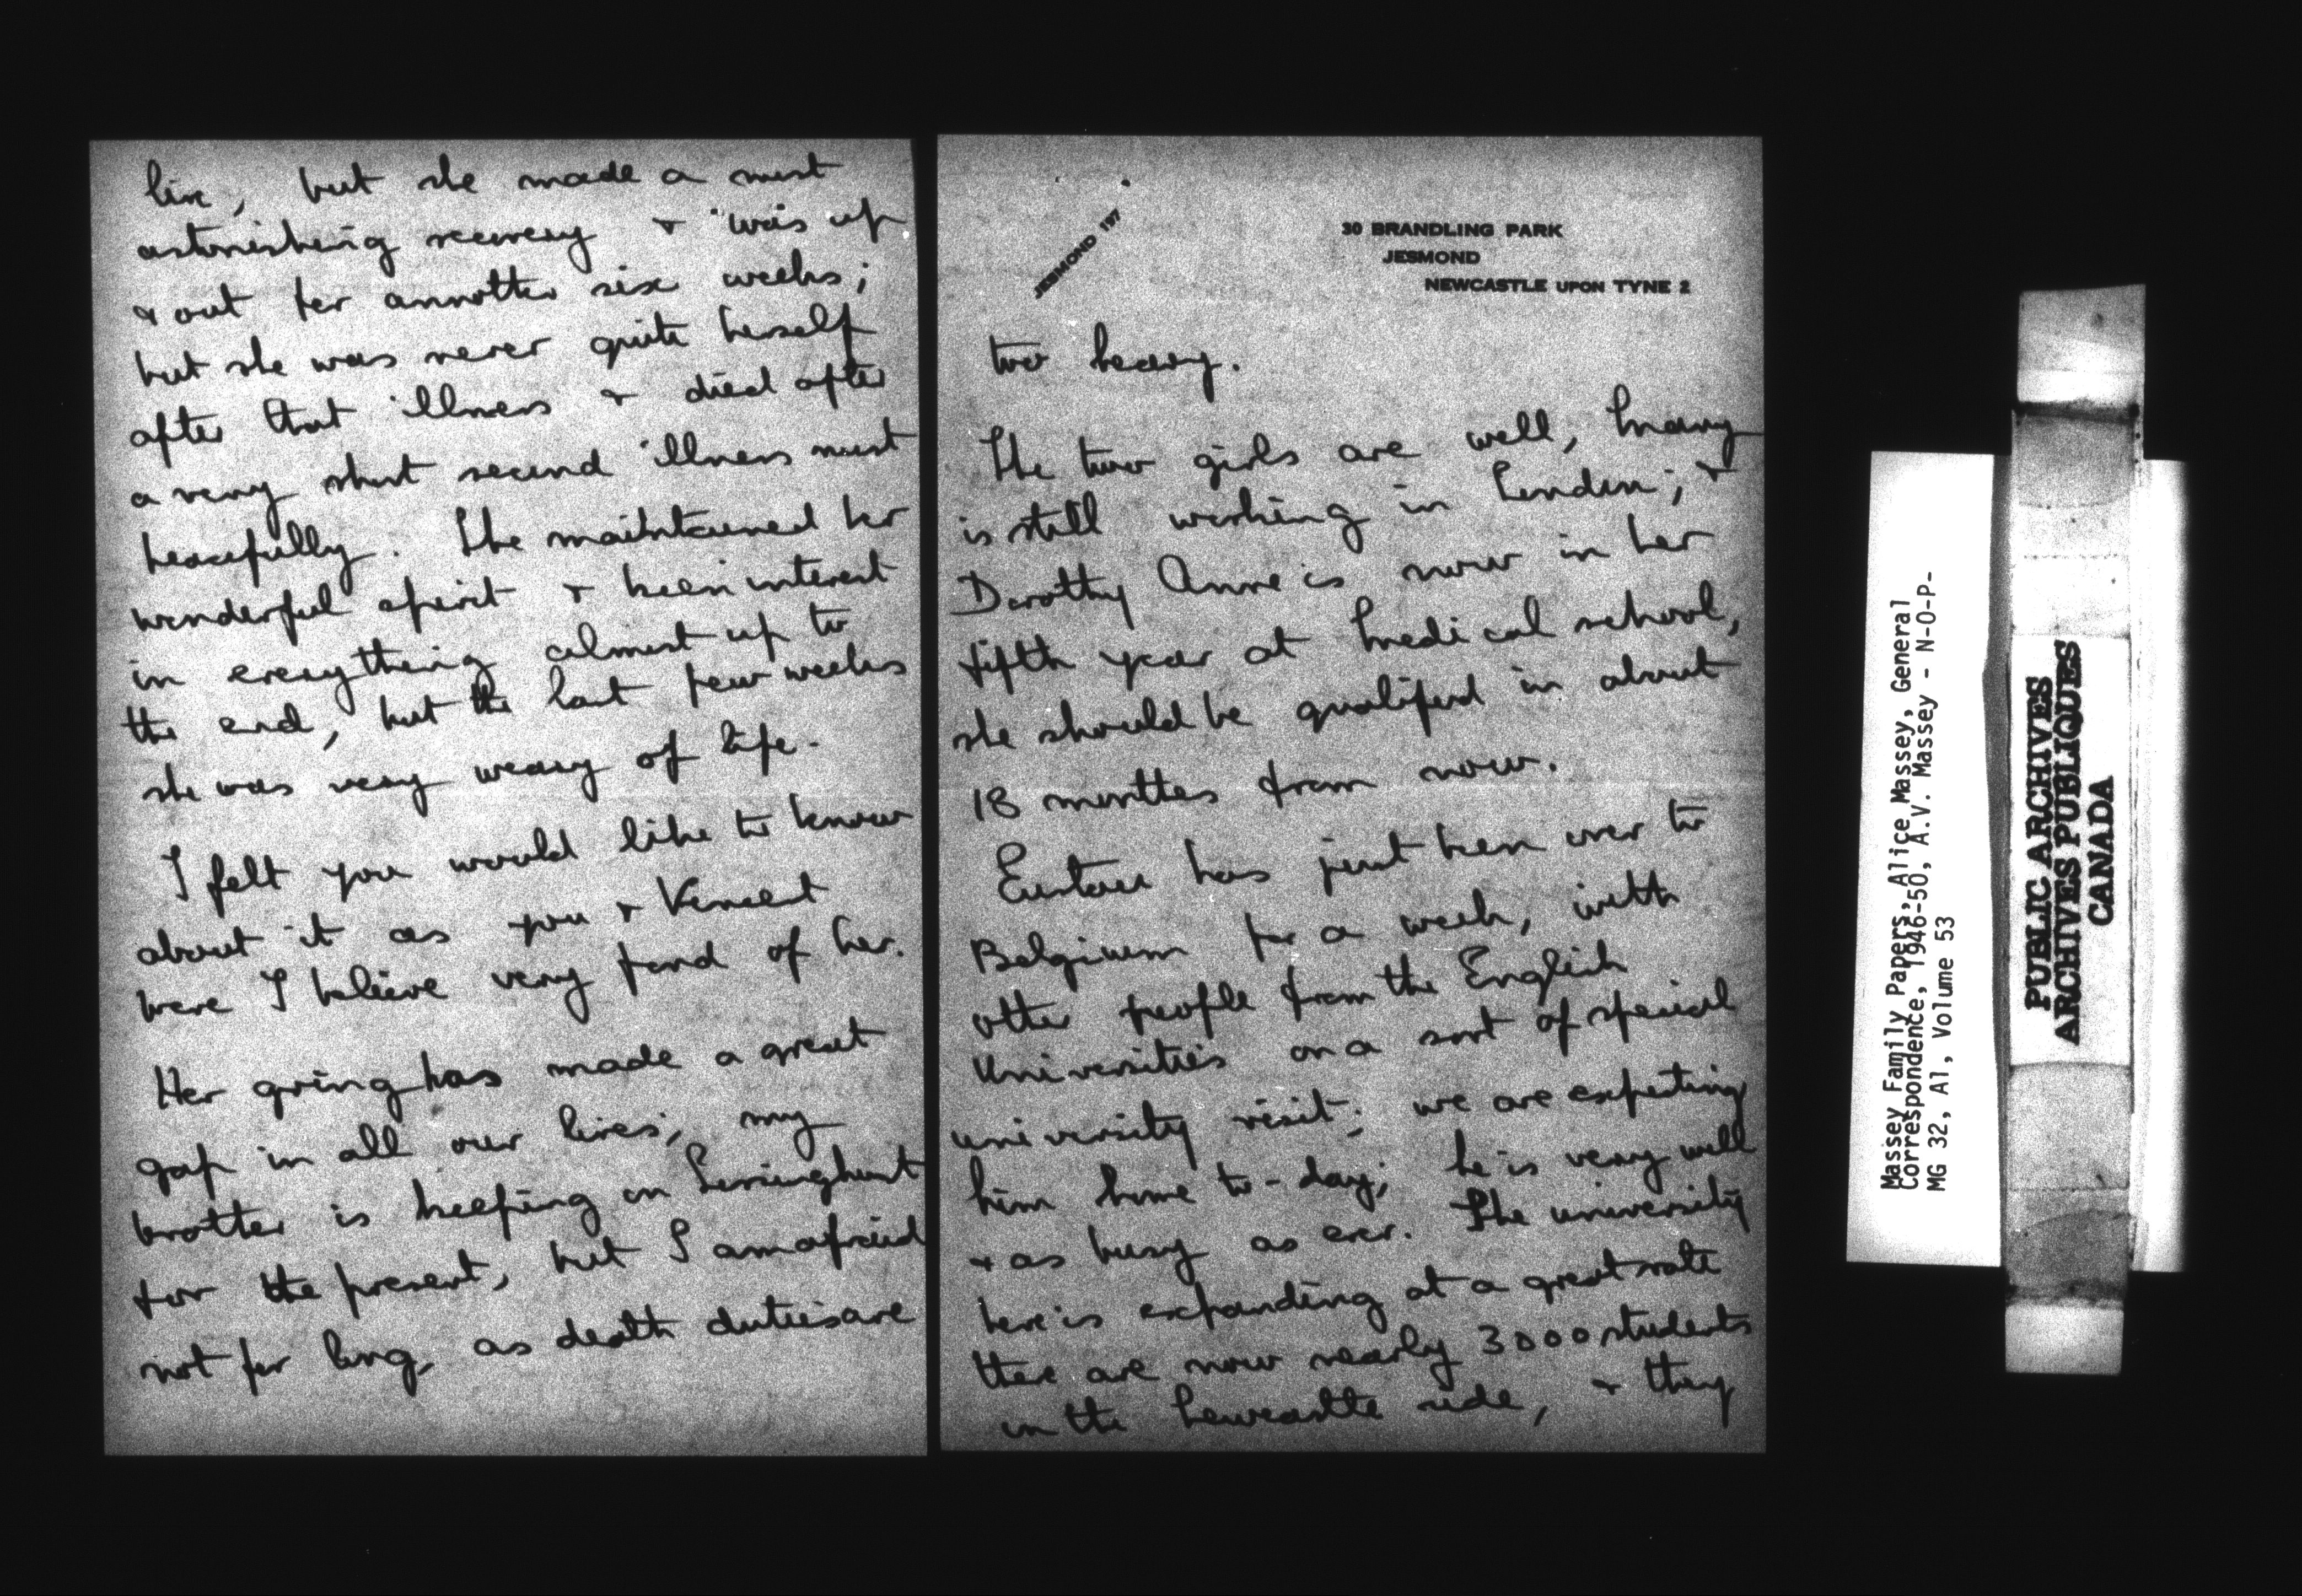 live, but she made a most
astonishing recovery & was up
& out for annother six weeks;
but she was never quite herself
after that illness & died after
a very short second illness most
peacefully. She maintained her
wonderful spirit & keen interest
in everything almost up to
the end, but the last few weeks
she was very weary of life.
I felt you would like to know
about it as you & Vincent
were I believe very fond of her.
Her going has made a great
gap in all our lives; my
brother is keeping on
for the present, but I am afraid
not for long, as death duties are
JESMOND 197
30 BRANDLING PARK
JESMOND
NEWCASTLE UPON TYNE 2
too heavy.
The two girls are well, Mary
is still working in London; &
Dorothy Anne is now in her
fifth year at Medical school,
she should be qualified in about
18 months from now.
Eustace has just been over to
Belgium for a week, with
other people from the English
Universities on a sort of special
university visit; we are expecting
him home to-day; he is very well
& as busy as ever. The university
here is expanding at a great rate
there are now nearly 3000 students
in the Newcastle side, & they
Massey Family Papers, Alice Massey, General
Correspondence, 1946-50, A.V. Massey - N-O-P-
MG 32, A1, Volume 53
PUBLIC ARCHIVES
ARCHIVES PUBLIQUES
CANADA